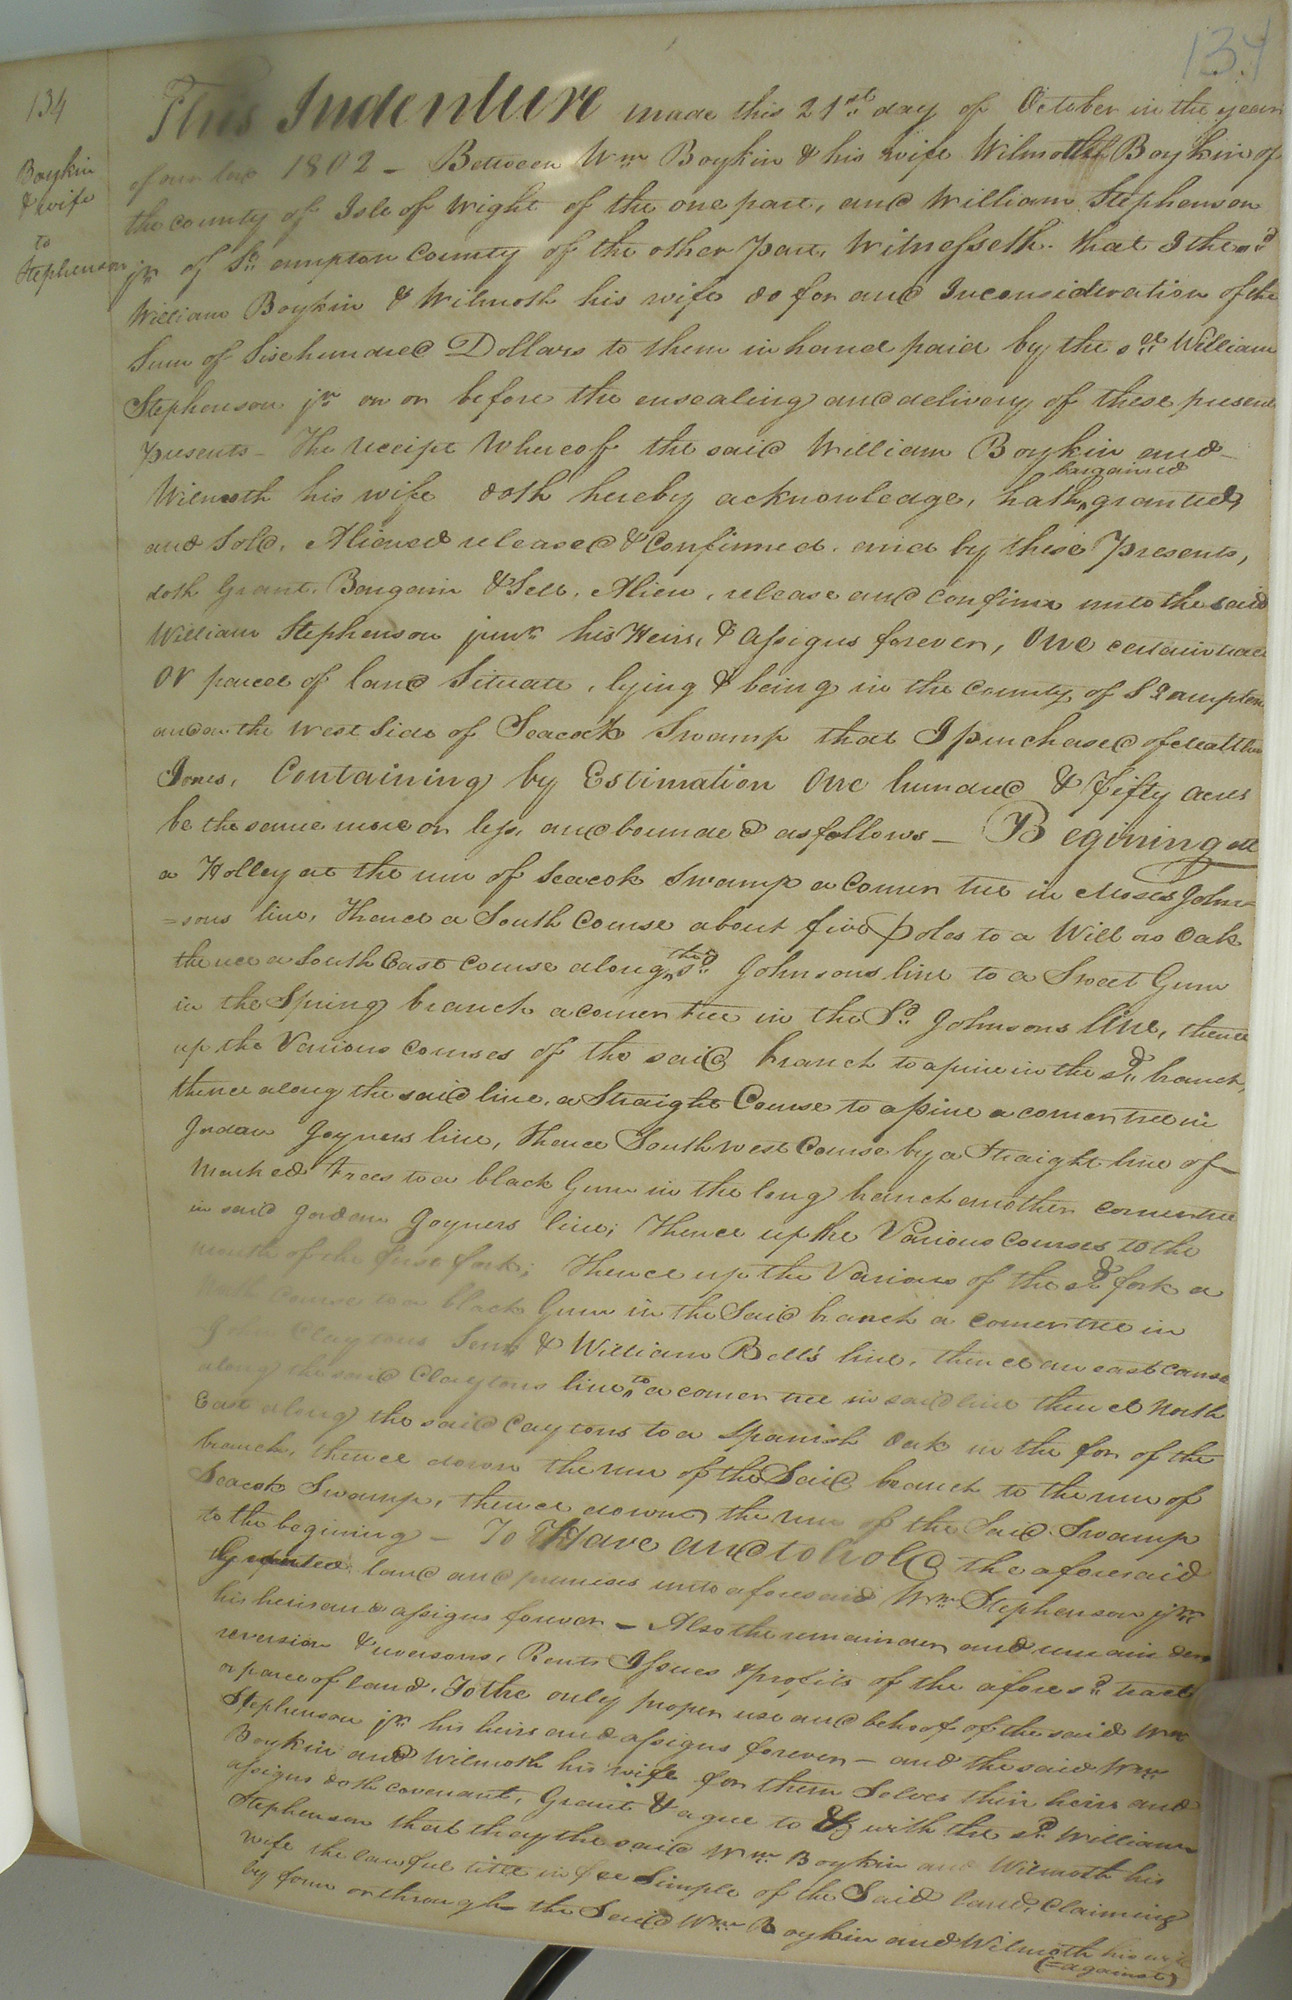 134
134
Boykin
& wife
to
Stephenson
This Indenture made this 21st day of October in the year
of our lord 1802 - Between Wm Boykin & his wife Wilmoth Boykin of
the county of Isle of Wight of the one part, and William Stephenson
jr of So ampton County of the other Part, Witnesseth. that I the sd
William Boykin & Wilmoth his wife do for and Inconsideration of the
Sum of Six hundred Dollars to them in hand paid by the sd William
Stephenson jr on or before the ensealing and delivery of these presents
presents - The receipt Whereof the said William Boykin and
Wilmoth his wife doth hereby acknowledge, hath bargained granted,
and Sold, Aliened released & Confirmed. and by these Presents,
doth Grant. Bargain & Sell, Alien, release and confirm unto the said
William Stephenson junr his Heirs, & assigns forever, One certain tract
or parcel of land Situate, lying & being in the County of So ampton
and on the west Side of Seacock Swamp that I purchased of Matthew
Jones, Containing by Estimation One hundred & Fifty acres
be the same more or less, and bounded as follows - Begining at
a Holley at the run of Seacok Swamp a Corner tree in Moses John-
=sons line, Thence a South Course about five poles to a Willow Oak
thence a South East Course along the sd Johnsons line to a Sweet Gum
in the Spring branch a corner tree in the Sd Johnsons line, thence
up the Various Courses of the said branch to a pine in the sd branch,
thence along the said line, a Straight Course to a pine a corner tree in
Jordan Joyners line, Thence South west Course by a Straight line of
Marked Trees to a black Gum in the long branch another corner tree
in said Jordan Joyners line; Thence up the Various Courses to the
mouth of the first fork; Thence up the Various of the sd fork a
North Course to a black Gum in the Said branch a corner tree in
John Claytons Senr & William Bell's line, thence an east Course
along the said Claytons line to a corner tree in said line thence North
East along the said Caytons to a Spanish Oak in the for of the
branch, thence down the run of the Said branch to the run of
Seacok Swamp, thence down the run of the Said Swamp
to the begining - To Have and to hold the aforesaid
Granted land and premises unto aforesaid Wm Stephenson jr
his heirs and assigns forever - Also the remainder and remainders
reversion & reversons, Rents Issues & profits of the afores.d tract
or parcel of land, To the only proper use and behoof of the said Wm
Stephenson jr his heirs and assigns forever - and the said Wm
Boykin and Wilmoth his wife for them Selves thir heirs and
assigns doth covenant, Grant & agree to & with the sd William
Stephenson that they the said Wm Boykin and Wilmoth his
wife the lawful title in fee Simple of the Said land, Claiming
by from or through the Said Wm Boykin and Wilmoth his wife
(=against)